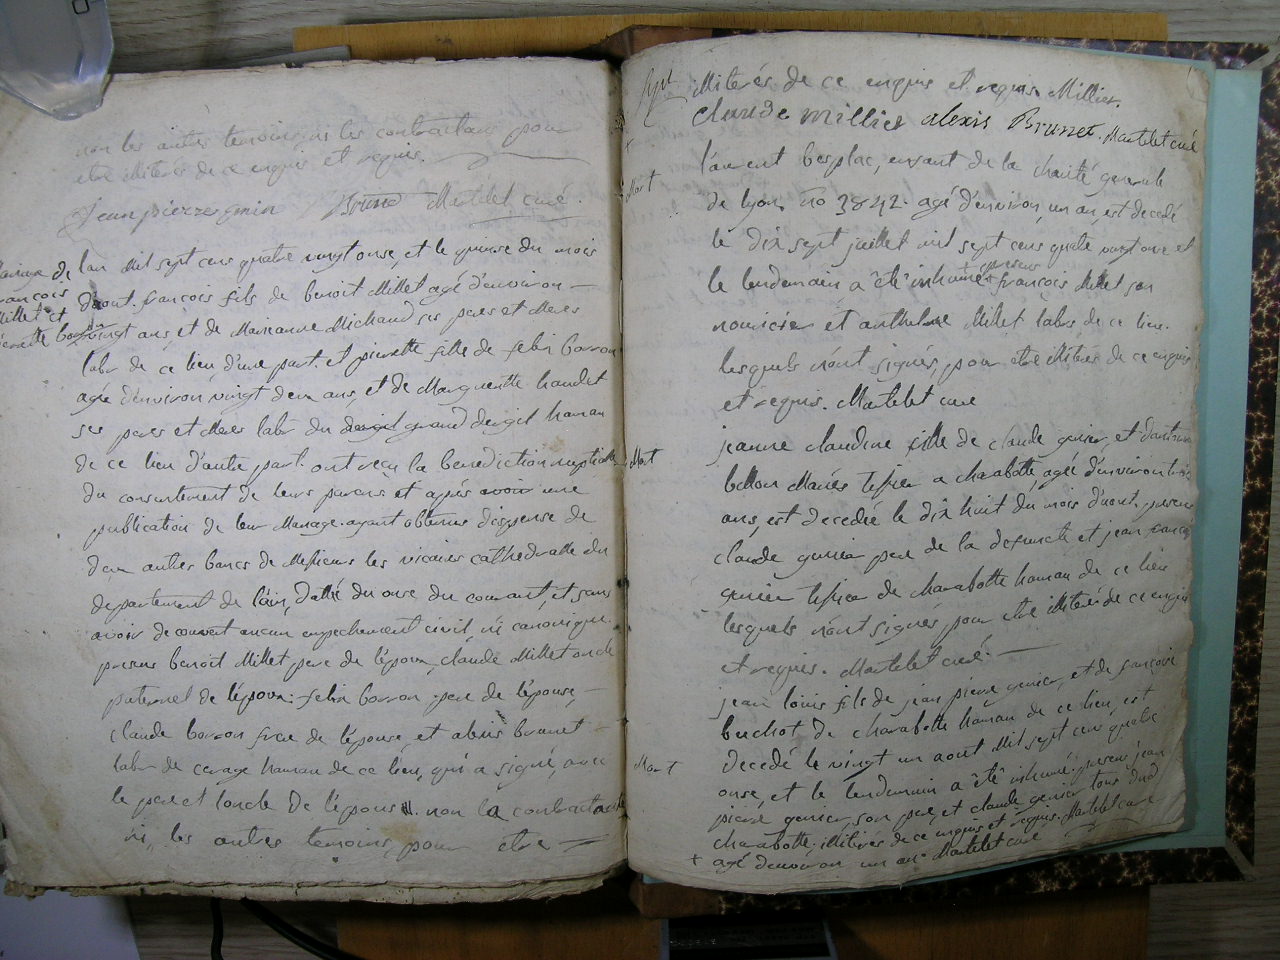 non les autres temoins ni les contractans pour
etre illiterés de ce enquis et requis.
jean pierre genin Brunet Martelet curé.
mariage de
françois
Millet et
pierrette borron
l'an Mil sept cens quatre vingt onse, et le quinse du mois
d'aout. françois fils de benoit Millet agé d'environ
vingt ans, et de Marieanne Michaud ses peres et Meres
labr de ce lieu d'une part. et pierrette fille de felix borron
agée d'environ vingt deux ans, et de Margueritte handet
ses peres et Meres labr du grand dergil hamau
de ce lieu d'autre part. ont reçu la benediction nuptialle
du consentement de leurs parens et après avoir une
publication de leur Mariage. ayant obtenus dispense de
deux autres bancs de Messieurs les vicaires cathedralle du
departement de l'ain, datté du onse du courant, et sans
avoir decouvert aucun empechement civil ni canonique.
presens benoit Millet pere de l'époux, claude Millet oncle
paternel de l'époux. felix borron pere de l'épouse,
claude borron frere de l'épouse, et alexis brunet
labr de cerage hamau de ce lieu, qui a signé, avec
le pere et l'oncle de l'époux. non la contractante
ni, les autres temoins, pour etre
illiterés de ce enquis et requis. Millier.
claude millier alexis Brunet. Martelet curé
Mort
laurent besplac, enfant de la charité generale
de lyon, no 3842. agé d'environ un an, est decedé
le dix sept juillet mil sept cens quatre vingt onse et
le lendemain a été inhumé + presens françois Millet son
nouricier et anthelme Millet labrs de ce lieu.
lesquels n'ont signés, pour etre illiterés de ce enquis
et requis. Martelet curé
Mort
jeanne claudine fille de claude genier, et
bellon Mariés tissier a charabotte, agée d'environ trois
ans, est decedée le dix huit du mois d'aout. presens
claude genier pere de la defuncte et jean françois
genier tissier de charabotte hamau de ce lieu
lesquels n'ont signés, pour etre illiterés de ce enquis
et requis. Martelet curé.
Mort
jean louis fils de jean pierre genier, et de françoise
buchot de charabotte hamau de ce lieu, est +
decedé le vingt un aout Mil sept cens quatre
onse, et le lendemain a été inhumé. presens jean
pierre genier, son pere, et claude genier tous dud
charabotte. illiterés de ce enquis et requis. Martelet curé
+ agé d'environ un an. Martelet curé